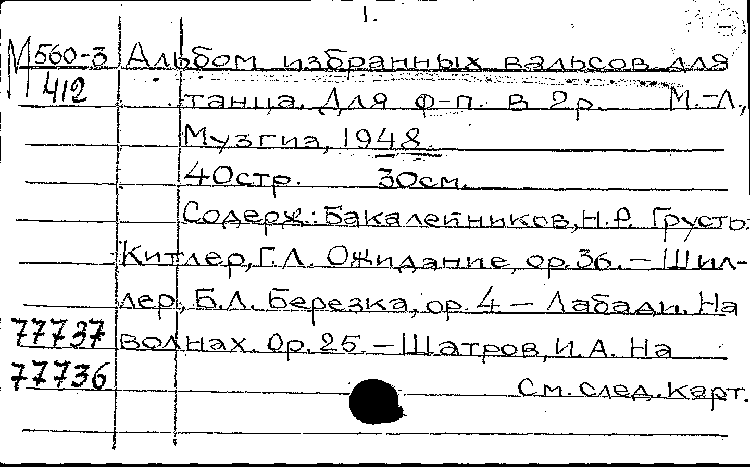 1.
М 560-3 Альбом избранных вальсов для
412 танца. Для ф-п. в 2р. М.-Л.,
Музгиз, 1948.
40стр. 30см.
Содерж.: Бакалейников, Н.Р. Грусть.
Китлер, Г.Л. Ожидание, ор.36. – Шил-
лер, Б.Л. Березка, ор.4 – Лабади. На
77737 волнах. Ор.25. – Шатров, И.А. На
77736 См. след. карт.